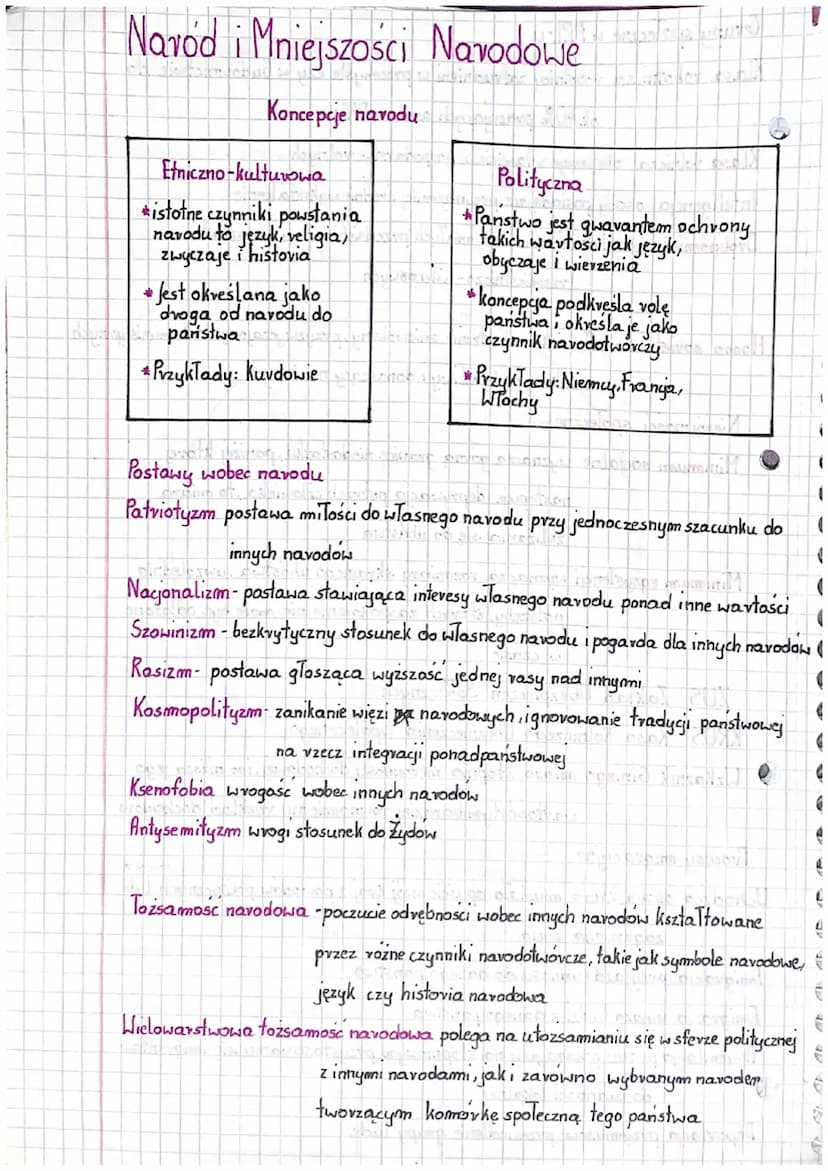 Naród i Mniejszości Narodowe
Koncepcje narodu
Etniczno-kulturowa
*istotne czynniki powstania
narodu to język, religia,
zwyczaje i historia
*Jest określana jako
droga od narodu do
państwa
*Przykłady: Kurdowie
Polityczna
*Państwo jest gwarantem ochrony
takich wartości jak język,
obyczaje i wierzenia
*koncepcja podkreśla volę
państwa i określa je jako
czynnik narodotwórczy
*Przykłady: Niemcy, Francja,
Włochy
Postawy wobec narodu
Patriotyzm postawa miłości do własnego narodu przy jednoczesnym szacunku do
innych narodów
Nacjonalizm - postawa stawiająca interesy własnego narodu ponad inne wartości
Szowinizm - bezkrytyczny stosunek do własnego narodu i pogarda dla innych narodów
Rasizm - postawa głosząca wyższość jednej rasy nad innymi
Kosmopolityzm - zanikanie więzi narodowych, ignorowanie tradycji państwowej
na rzecz integracji ponadpaństwowej
Ksenofobia wrogość wobec innych narodów
Antysemityzm wrogi stosunek do Żydów
Tożsamość narodowa - poczucie odrębności wobec innych narodów kształtowane
przez różne czynniki narodotwórcze, takie jak symbole narodowe,
język czy historia narodowa
Wielowarstwowa tożsamość narodowa polega na utożsamianiu się w sferze politycznej
z innymi narodami, jak i zarówno wybranym narodem
tworzącym komórkę społeczną tego państwa